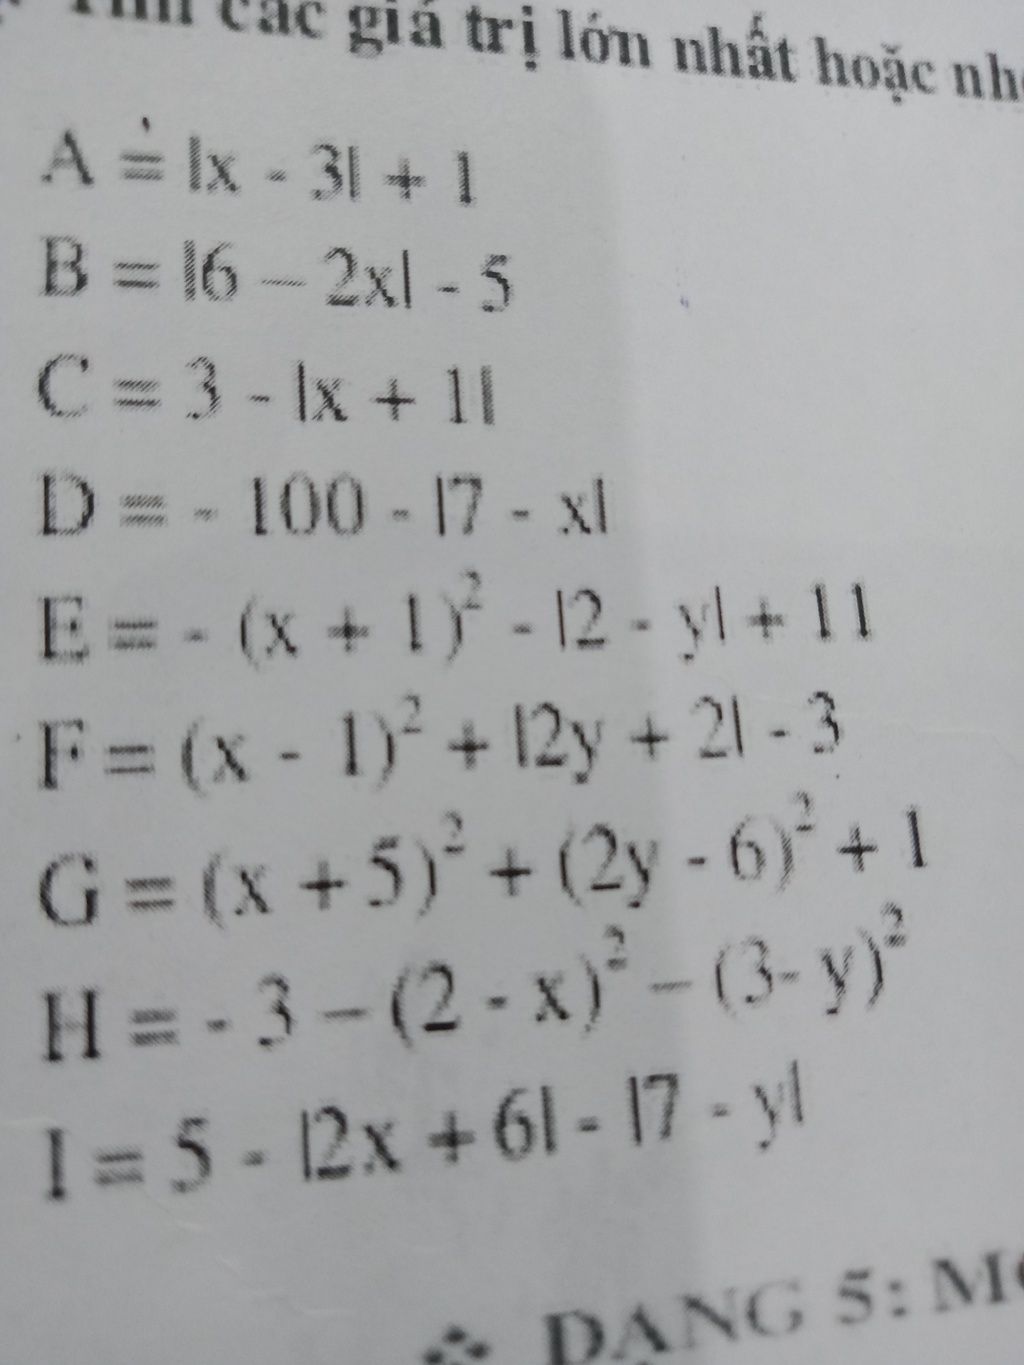 các giá trị lớn nhất hoặc
A = |x - 3| + 1
B = |6 – 2x| - 5
C = 3 - |x + 1|
D = - 100 - |7 - x|
E = - (x + 1)² - |2 - y| + 11
F = (x - 1)² + |2y + 2| - 3
G = (x + 5)² + (2y - 6)² + 1
H = - 3 – (2 - x)² – (3- y)²
I = 5 - |2x + 6| - |7 - y|
❖ DẠNG 5: